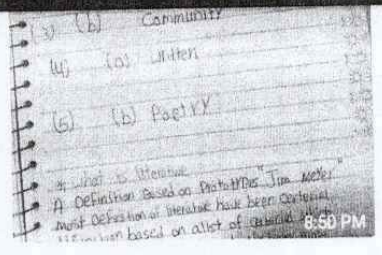 (3) (b) Community
(4) (a) written
(5) (b) Poetry
* what is literature
A Definition Based on Prototypes "Jim Meyer"
most Defesition of literature have been criterial
based on a list of
8:50 PM